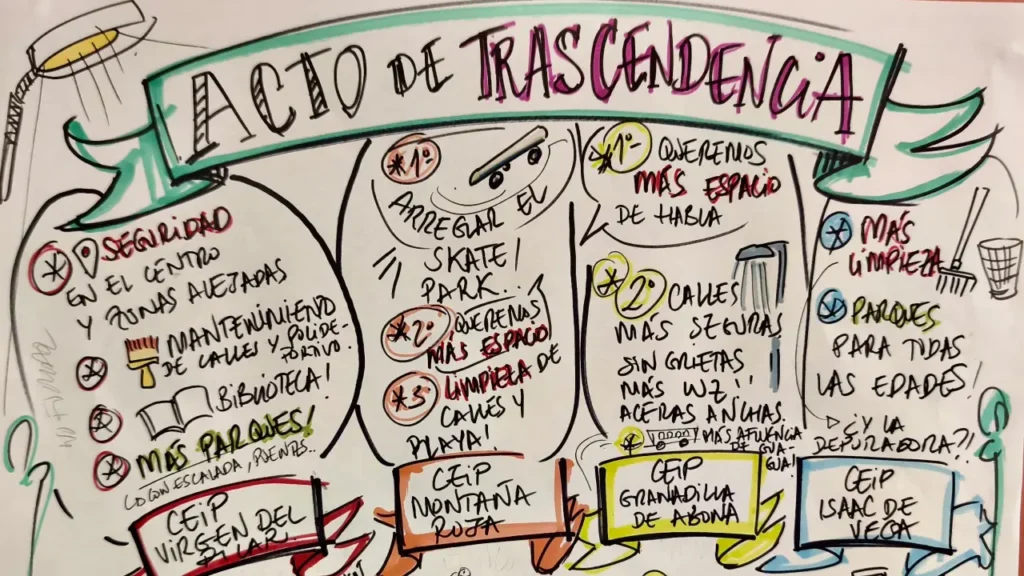 ACTO DE TRASCENDENCIA
* SEGURIDAD
EN EL CENTRO
Y ZONAS ALEJADAS
* MANTENIMIENTO
DE CALLES Y POLIDE-
PORTIVO.
* BIBLIOTECA!
* MÁS PARQUES!
LO CON ESCALADA, PUENTES..
CEIP
VIRGEN DEL
PILAR
*1º
ARREGLAR EL
SKATE
PARK.!
*2º QUEREMOS
MÁS ESPACIO
*3º LIMPIEZA DE
CALLES Y
PLAYA!
CEIP
MONTAÑA
ROJA
*1º- QUEREMOS
MÁS ESPACIO
DE HABLA
*2º CALLES
MÁS SEGURAS
SIN GRIETAS
MÁS LUZ!!
ACERAS ANCHAS.
* MÁS AFLUENCIA
DE GUA-
GUA!
CEIP
GRANADILLA
DE ABONA
* MÁS
LIMPIEZA
* PARQUES
PARA TODAS
LAS EDADES!
¿Y LA
DEPURADORA?!
CEIP
ISAAC DE
VEGA